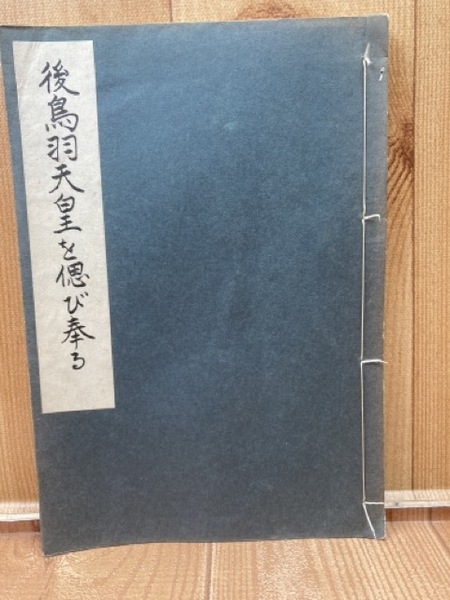 後鳥羽天皇を偲び奉る